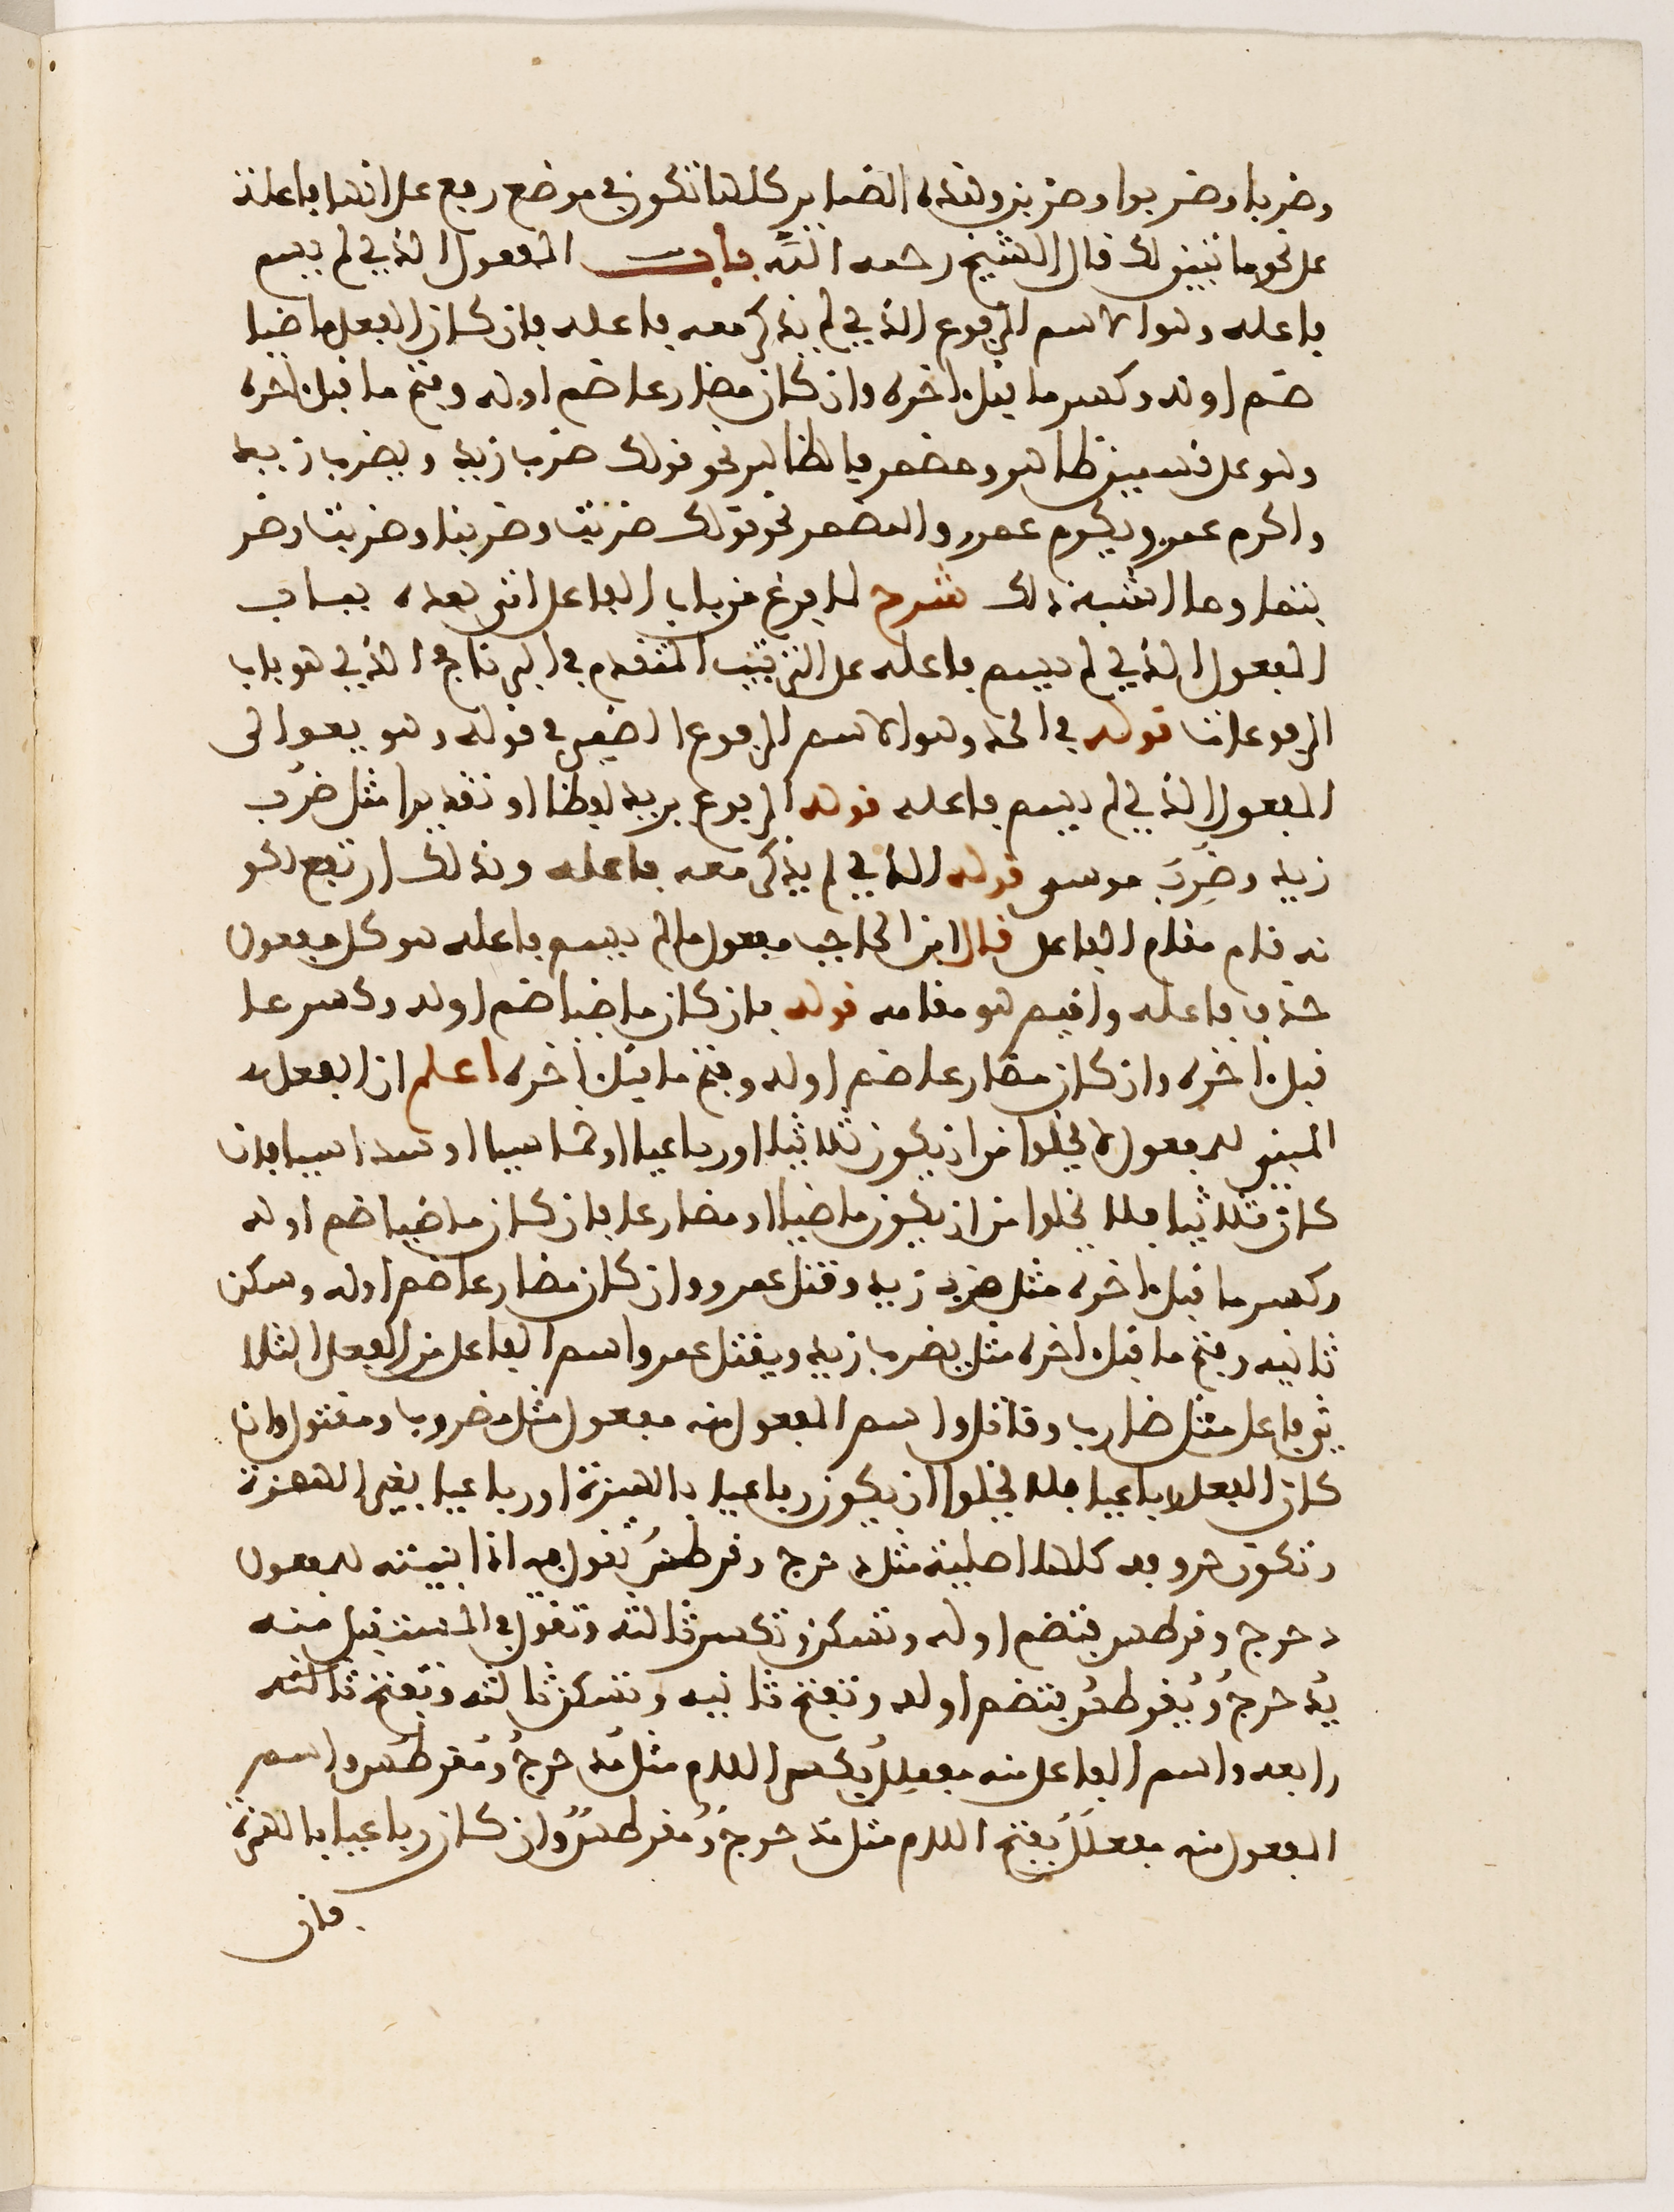 وضربا وضربوا وضربن وهذه الضماير كلها تكون في موضع رفع على انها فاعلة
على نحو ما تبين لك قال الشيخ رحمه الله باب المفعول الذي لم يسم
فاعله وهو الاسم المرفوع الذي لم يذكر معه فاعله فان كان الفعل ماضيا
ضم اوله وكسر ما قبل اخره وان كان مضارعا ضم اوله وفتح ما قبل اخره
وهو على قسمين ظاهر ومضمر فالظاهر نحو قولك ضرب زيد ويضرب زيد
واكرم عمرو ويكرم عمرو والمضمر نحو قولك ضربت وضربنا وضربت وضر
بتما وما اشبه ذلك شرح لما فرغ من باب الفاعل اتى بعده بباب
المفعول الذي لم يسم فاعله على الترتيب المتقدم في البرنامج الذي هو باب
المرفوعات قوله في الحد وهو الاسم المرفوع الضمير في قوله وهو يعود الى
المفعول الذي لم يسم فاعله قوله المرفوع يريد لفظا او تقديرا مثل ضرب
زيد وضرب موسى قوله الذي لم يذكر معه فاعله ولذلك ارتفع لكو
نه قام مقام الفاعل قال ابن الحاجب مفعول ما لم يسم فاعله هو كل مفعول
حذف فاعله واقيم هو مقامه قوله فان كان ماضيا ضم اوله وكسر ما
قبل اخره وان كان مضارعا ضم اوله وفتح ما قبل اخره اعلم ان الفعل
المبني للمفعول لا يخلوا من ان يكون ثلاثيا او رباعيا او خماسيا او سداسيا فان
كان ثلاثيا فلا يخلوا من ان يكون ماضيا او مضارعا فان كان ماضيا ضم اوله
وكسر ما قبل اخره مثل ضرب زيد وقتل عمرو وان كان مضارعا ضم اوله وسكن
ثانيه وفتح ما قبل اخره مثل يضرب زيد ويقتل عمرو واسم الفاعل من الفعل الثلا
ثي فاعل مثل ضارب وقاتل واسم المفعول منه مفعول مثل مضروب ومقتول وان
كان الفعل رباعيا فلا يخلوا ان يكون رباعيا بالهمزة او رباعيا بغير الهمزة
وتكون حروفه كلها اصلية مثل دحرج وقرطس تقول فيه اذا بنيته للمفعول
دحرج وقرطس فتضم اوله وتسكن وتكسر ثالثه وتقول في المستقبل منه
يُدحرجُ ويُقرطسُ فتضم اوله وتفتح ثانيه وتسكن ثالثه وتفتح ثالثه
رابعه واسم الفاعل منه مفعلِلٌ بكسر اللام مثل مُدحرجٌ ومُقرطسٌ واسم
المفعول منه مفعلَلٌ بفتح اللام مثل مدحرجٌ ومُقرطسٌ وان كان رباعيا بالهمزة
فان